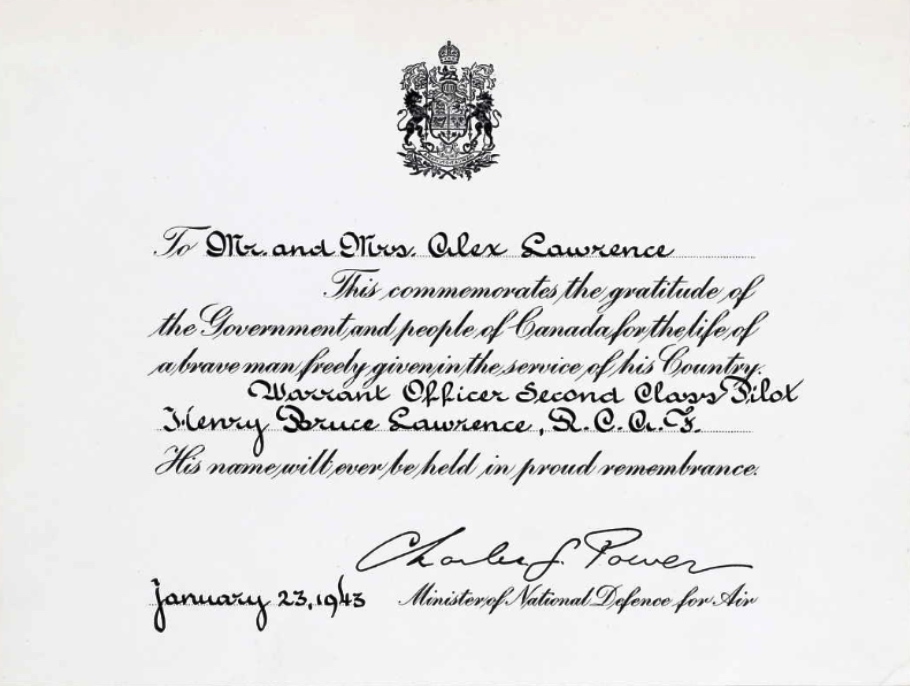 To Mr. and Mrs. Alex Lawrence
This commemorates the gratitude of
the Government and people of Canada for the life of
a brave man freely given in the service of his Country.
Warrant Officer Second Class Pilot
Henry Bruce Lawrence, R.C.A.F.
His name will ever be held in proud remembrance.
Charles G. Power
January 23, 1943 Minister of National Defence for Air